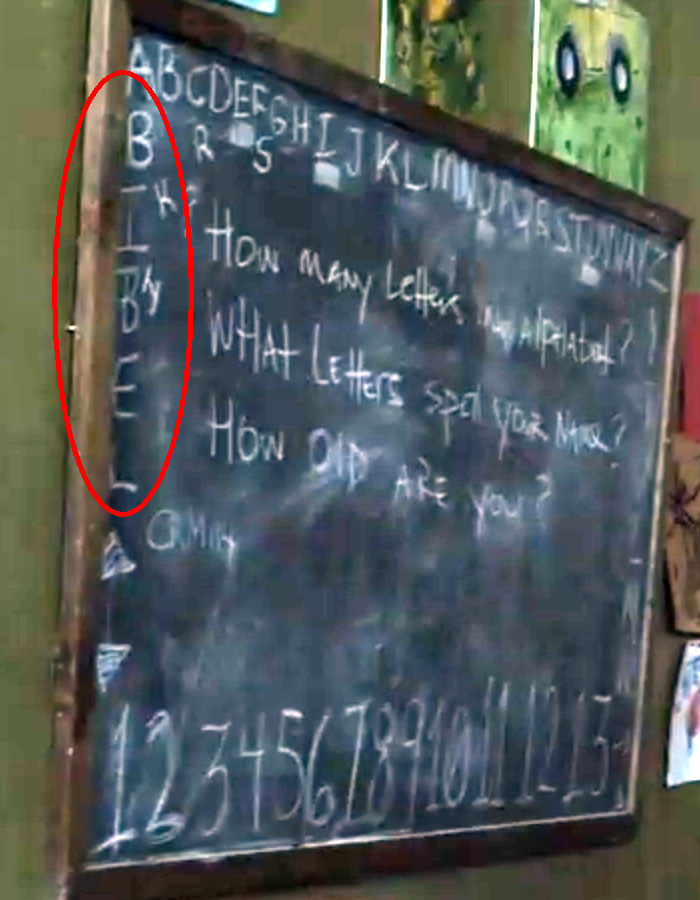 ABCDEFGHIJKLMNOPQRSTUVWXYZ
B R S
I
B
E
HOW MANY Letters in alphabet?
WHAt Letters spell your NAME?
HOW OlD ARE you?
1 2 3 4 5 6 7 8 9 10 11 12 13